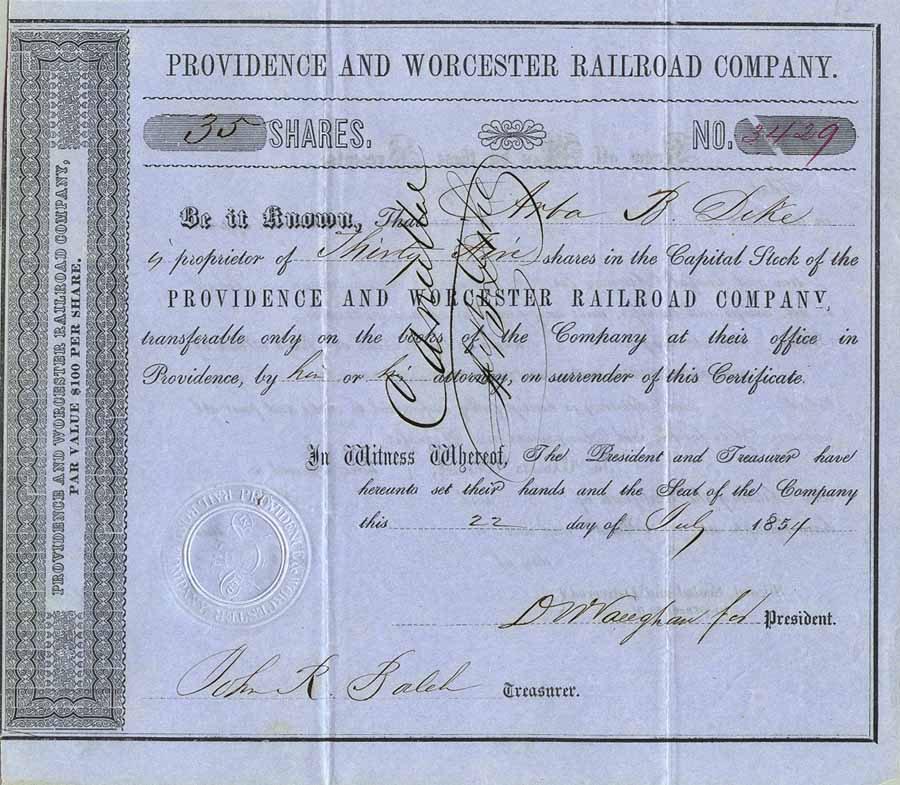 PROVIDENCE AND WORCESTER RAILROAD COMPANY.
35 SHARES. NO. 3429
Be it Known, That Arba B. Dike
is proprietor of Thirty five shares in the Capital Stock of the
PROVIDENCE AND WORCESTER RAILROAD COMPANY,
transferable only on the books of the Company at their office in
Providence, by him or his attorney, on surrender of this Certificate.
In Witness Whereof, The President and Treasurer have
hereunto set their hands and the Seal of the Company
this 22 day of July 1854
D W Vaughan for President.
John R. Balch Treasurer.
PROVIDENCE AND WORCESTER RAILROAD COMPANY,
PAR VALUE $100 PER SHARE.
PROVIDENCE & WORCESTER RAILROAD COMPANY